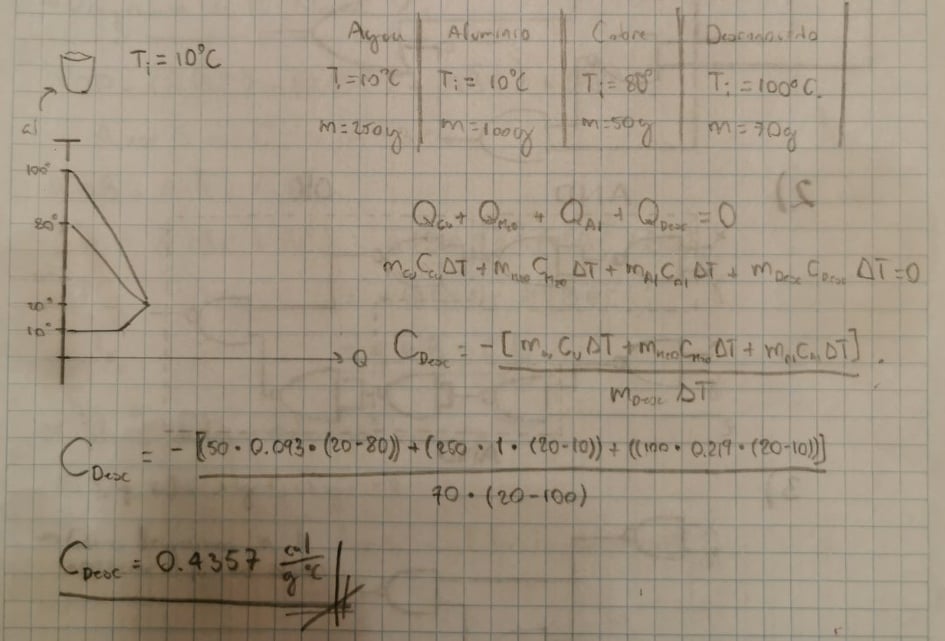 Agua Aluminio Cobre Desconocido
Ti = 10°C
Ti = 10°C Ti = 10°C Ti = 80° Ti = 100°C.
m = 250g m = 100g m = 50g m = 70g
a)
T
100°
80°
20°
10°
Q
2)
Q_Cu + Q_H2O + Q_Al + Q_Desc = 0
m_Cu C_Cu ΔT + m_H2O C_H2O ΔT + m_Al C_Al ΔT + m_Desc C_Desc ΔT = 0
C_Desc = -[m_Cu C_Cu ΔT + m_H2O C_H2O ΔT + m_Al C_Al ΔT] .
m_Desc ΔT
C_Desc = -[(50 · 0.093 · (20-80)) + (250 · 1 · (20-10)) + ((100 · 0.219 · (20-10))]
70 · (20-100)
C_Desc = 0.4357 cal
g °C